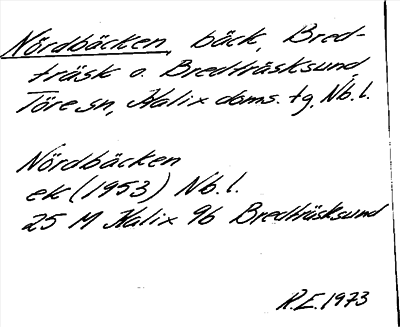 Nördbäcken, bäck, Bred-
träsk o. Bredträsksund,
Töre sn, Kalix doms. tg, Nb.l.
Nördbäcken
ek (1953) Nb.l.
25 M Kalix 96 Bredträsksund
R.E. 1973